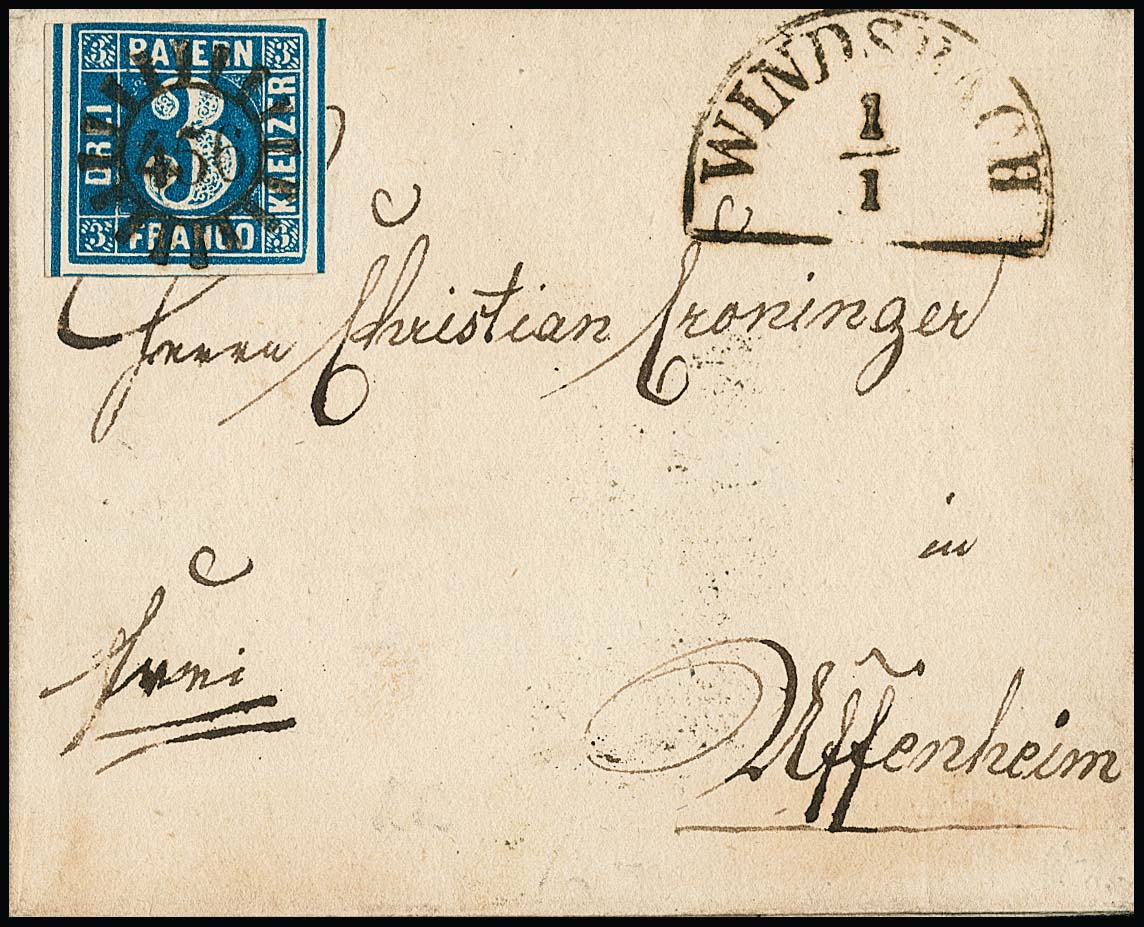 3 BAYERN 3
DREI 3 KREUZER
3 FRANCO 3
456
WINDSBACH
1
1
Herrn Christian Croninger
in
frei
Uffenheim